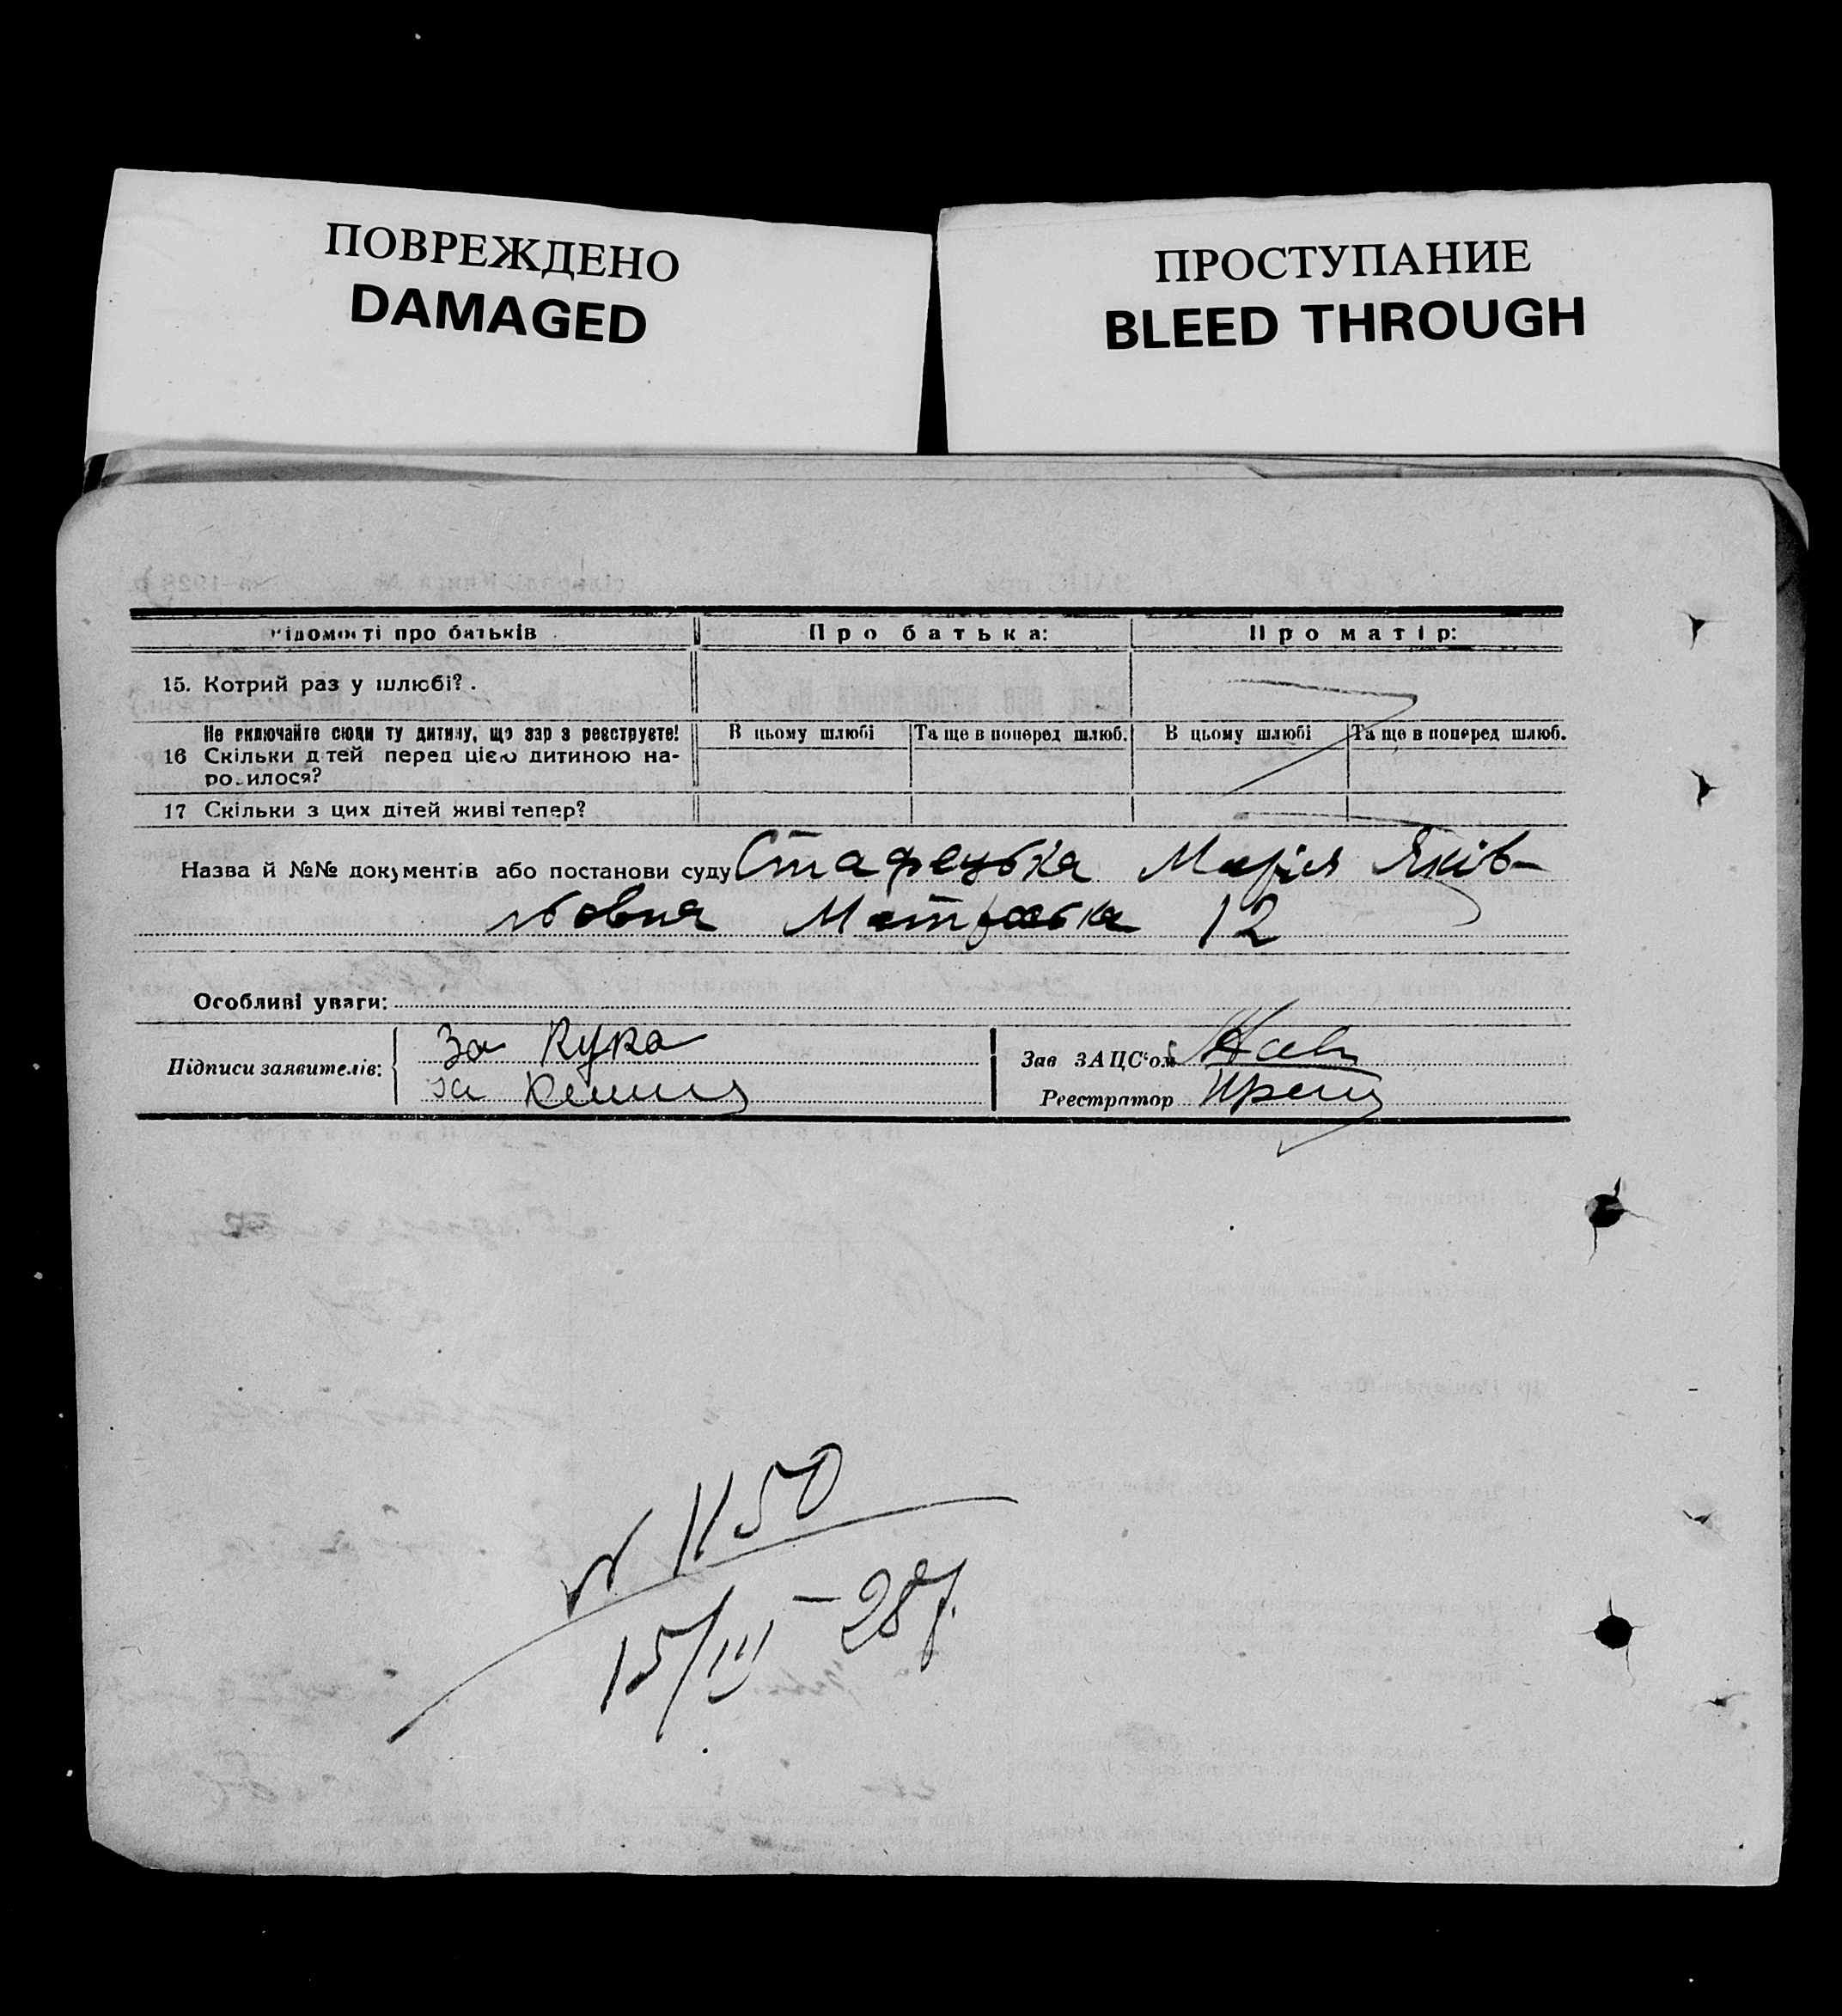 ПОВРЕЖДЕНО
DAMAGED
ПРОСТУПАНИЕ
BLEED THROUGH
Відомості про батьків
Про батька:
Про матір:
15. Котрий раз у шлюбі?.
Не включайте сюди ту дитину, що зар з реєструєте!
16 Скільки дітей перед цією дитиною на-
родилося?
В цьому шлюбі
Та ще в поперед шлюб.
В цьому шлюбі
Та ще в поперед шлюб.
17 Скільки з цих дітей живі тепер?
Назва й №№ документів або постанови суду Марія Яків-
львовна 12
Особливі уваги:
Підписи заявителів:
За Кука
за
Зав ЗАЦС'ом
Реєстратор
№ 1150
15/III – 28 р.